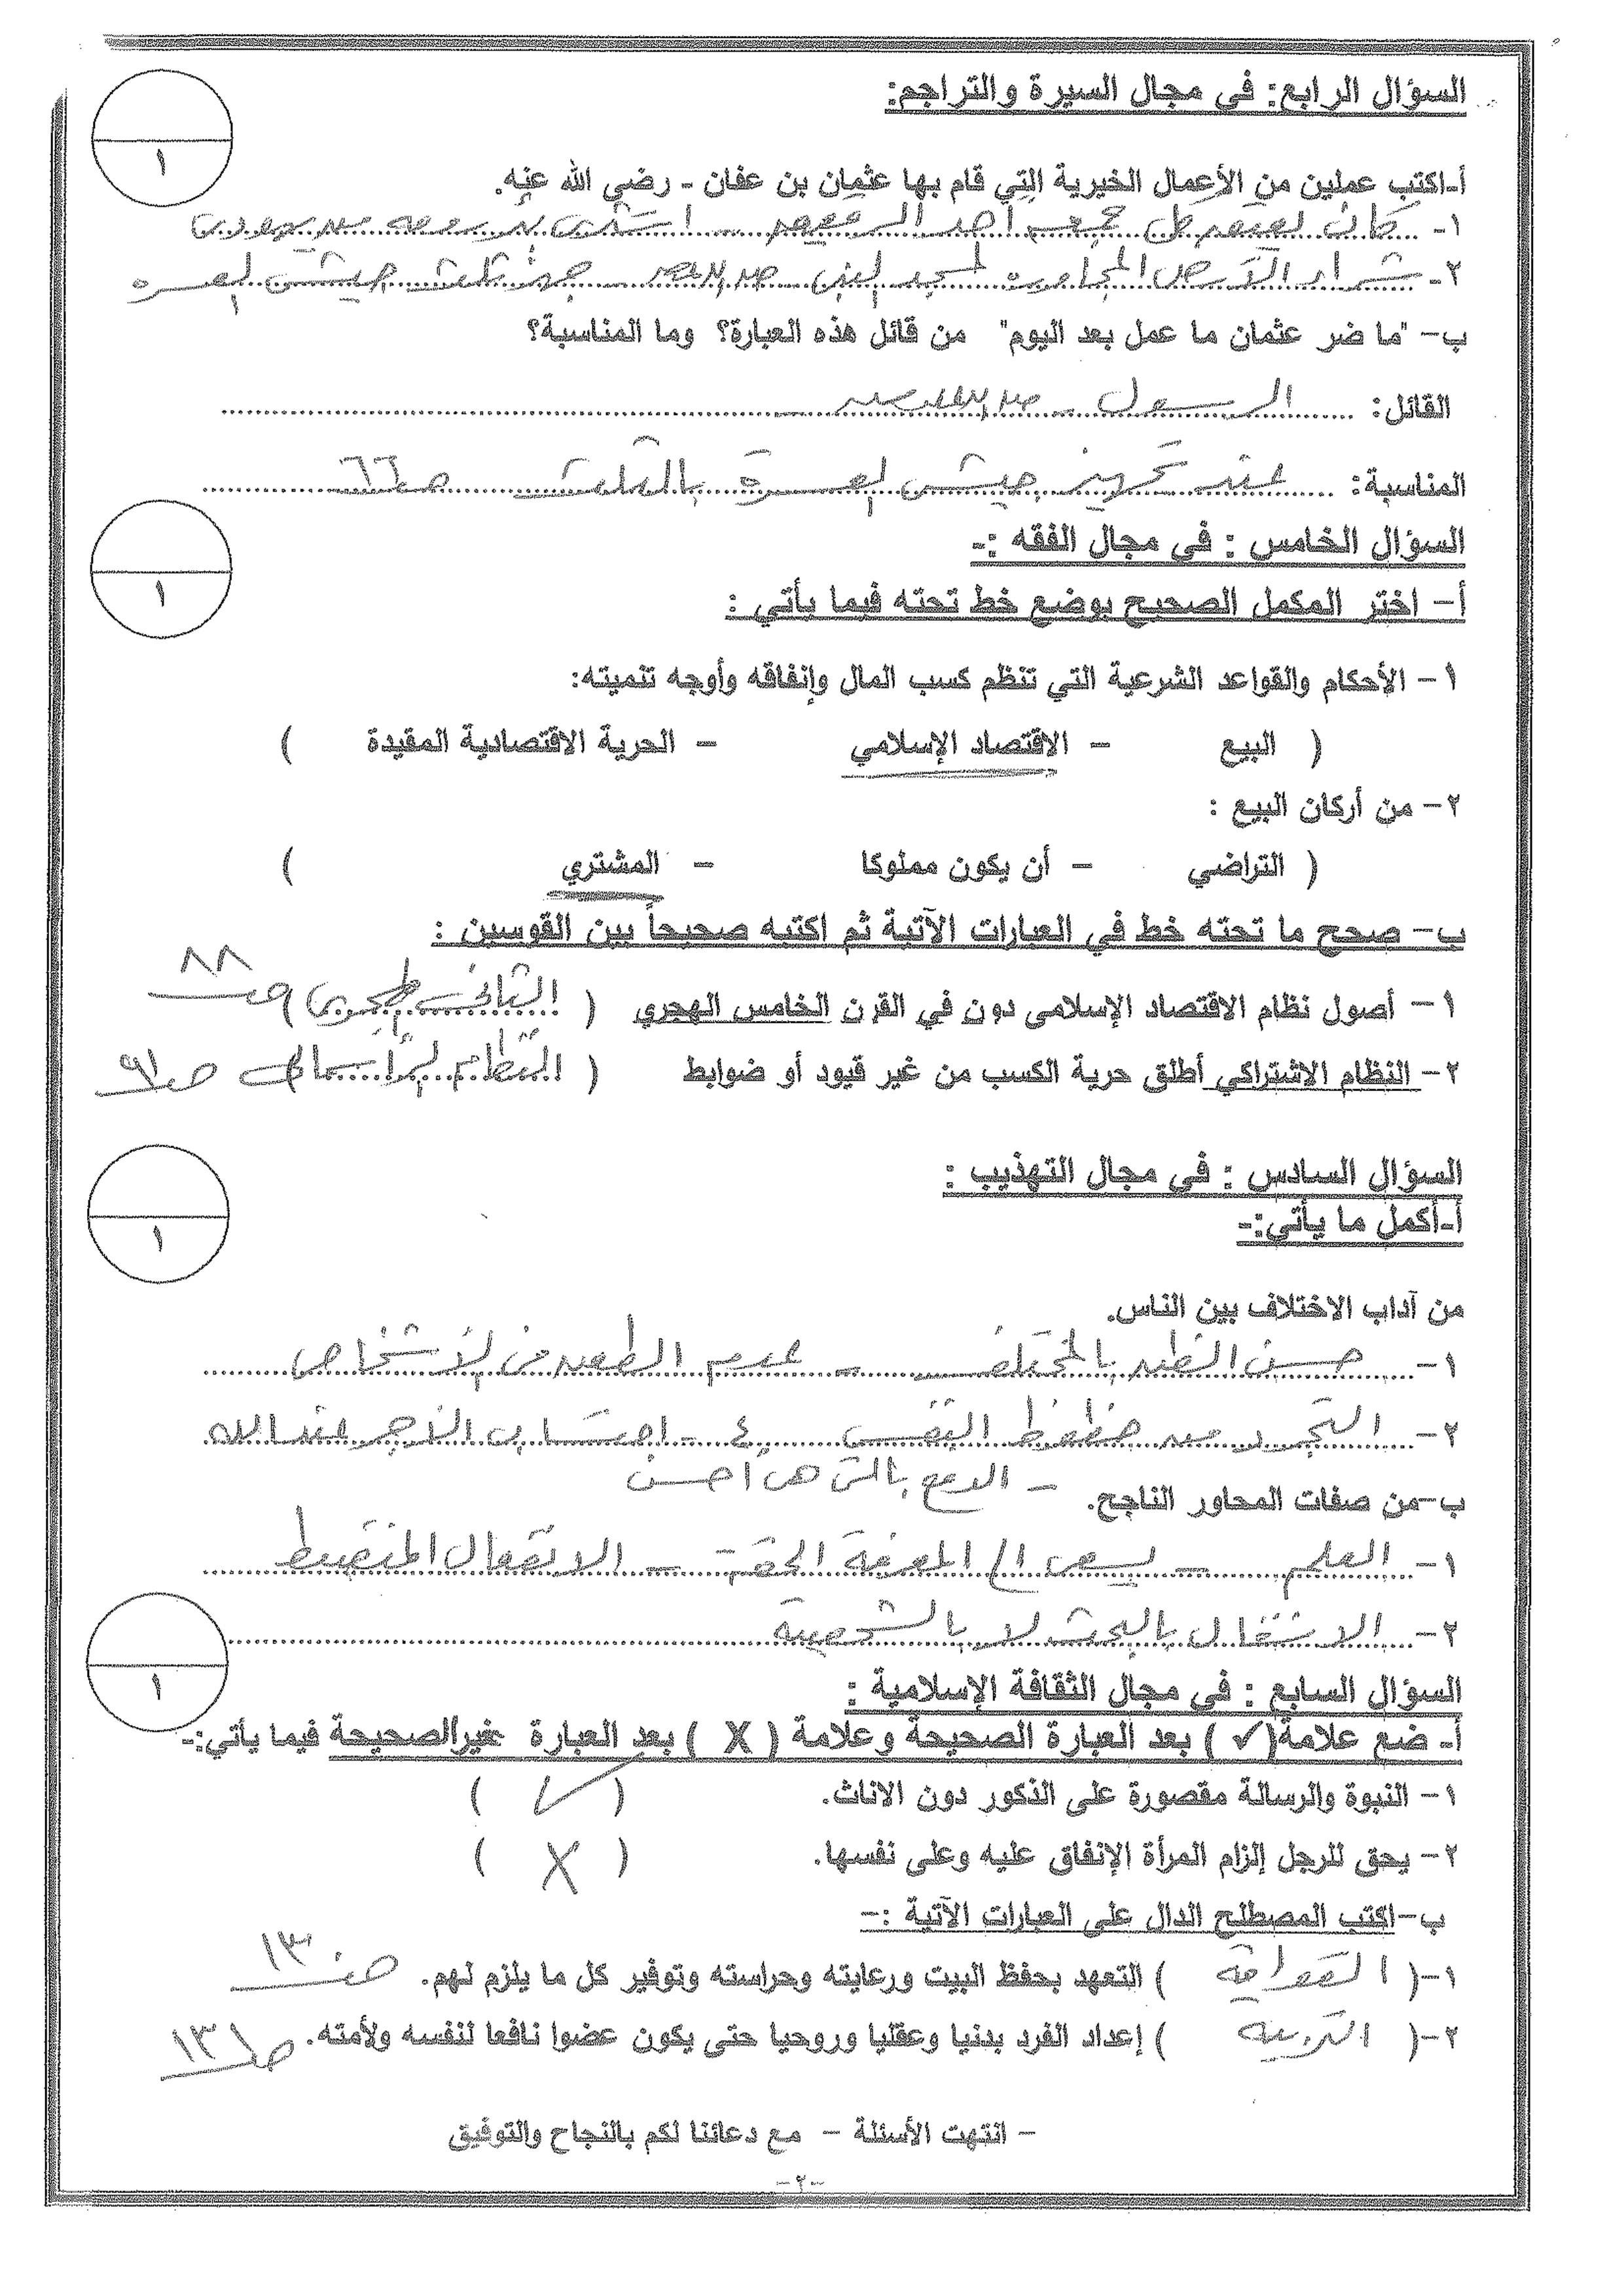 السؤال الرابع: في مجال السيرة والتراجم:
١
أ-اكتب عملين من الأعمال الخيرية التي قام بها عثمان بن عفان - رضي الله عنه.
١- كان يعتق كل جمعة أحد الرقيق - اشترى بئر رومة من يهودي
٢- شراء الأرض المجاورة لمسجد النبي - جهز ثلث جيش العسرة
ب- "ما ضر عثمان ما عمل بعد اليوم" من قائل هذه العبارة؟ وما المناسبة؟
القائل: الرسول -
المناسبة: عند تجهيز جيش العسرة بالثلث ص٦٦
السؤال الخامس : في مجال الفقه :-
١
أ- اختر المكمل الصحيح بوضع خط تحته فيما يأتي :
١- الأحكام والقواعد الشرعية التي تنظم كسب المال وإنفاقه وأوجه تنميته:
( البيع - الاقتصاد الإسلامي - الحرية الاقتصادية المقيدة )
٢- من أركان البيع :
( التراضي - أن يكون مملوكا - المشتري )
ب- صحح ما تحته خط في العبارات الآتية ثم اكتبه صحيحاً بين القوسين :
١- أصول نظام الاقتصاد الإسلامي دون في القرن الخامس الهجري ( الثاني الهجري ) ص ٨٨
٢- النظام الاشتراكي أطلق حرية الكسب من غير قيود أو ضوابط ( النظام الرأسمالي ) ص ٩١
السؤال السادس : في مجال التهذيب :
١
أ-أكمل ما يأتي:-
من آداب الاختلاف بين الناس.
١- حسن الظن بالمختلف - عدم الطعن في الأشخاص
٢- التجرد من حظوظ النفس ٤- احتساب الأجر عند الله
- الدفع بالتي هي أحسن
ب-من صفات المحاور الناجح.
١- العلم - يسعى إلى المعرفة الحقة - الانفعال المنضبط
٢- الاشتغال بالبحث لا بالشخصية
١
السؤال السابع : في مجال الثقافة الإسلامية :
أ- ضع علامة(✓ ) بعد العبارة الصحيحة وعلامة ( X ) بعد العبارة غيرالصحيحة فيما يأتي:-
١- النبوة والرسالة مقصورة على الذكور دون الاناث. ( ✓ )
٢- يحق للرجل إلزام المرأة الإنفاق عليه وعلى نفسها. ( X )
ب-اكتب المصطلح الدال على العبارات الآتية :-
١-( القوامة ) التعهد بحفظ البيت ورعايته وحراسته وتوفير كل ما يلزم لهم.
٢-( التربية ) إعداد الفرد بدنيا وعقليا وروحيا حتى يكون عضوا نافعا لنفسه ولأمته.
- انتهت الأسئلة - مع دعائنا لكم بالنجاح والتوفيق
-٢-